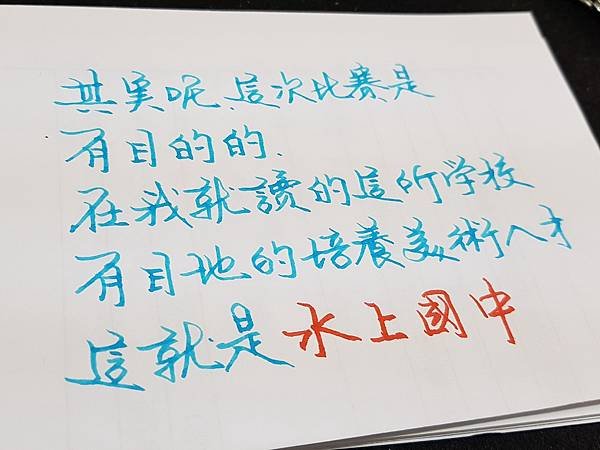 其実呢,這次比賽是
有目的的.
在我就讀的這所学校
有目地的培養美術人才
這就是水上國中